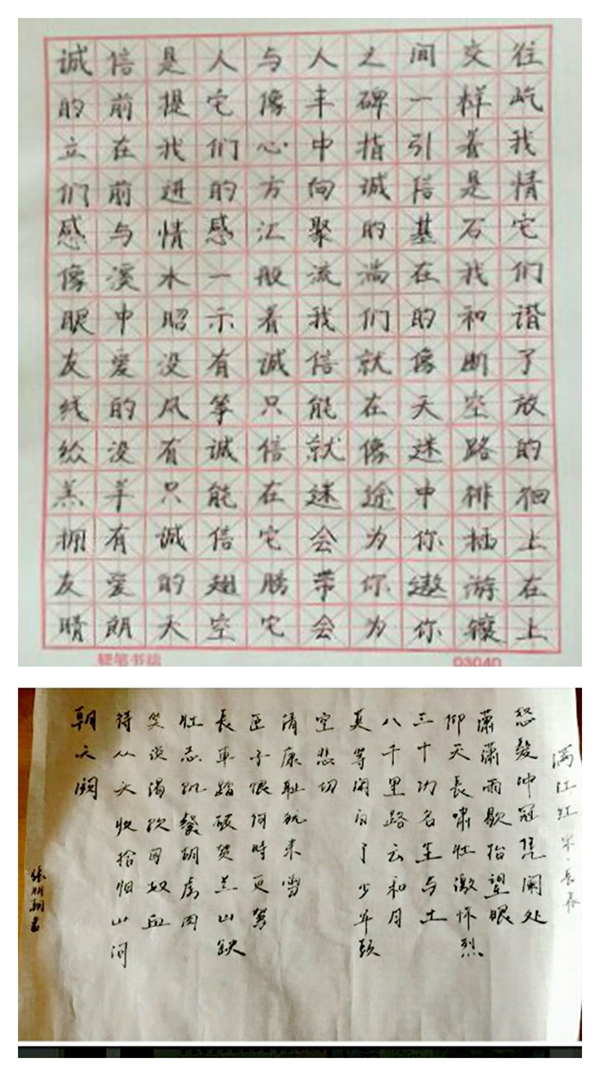 诚信是人与人之间交往
的前提它像丰碑一样屹
立在我们心中指引着我
们前进的方向诚信是情
感与情感汇聚的基石它
像溪水一般流淌在我们
眼中昭示着我们的和谐
友爱没有诚信就像断了
线的风筝只能在天空放
纵没有诚信就像迷路的
羔羊只能在迷途中徘徊
拥有诚信它会为你插上
友爱的翅膀带你遨游在
晴朗天空它会为你镶上
硬笔书法 0304D
满江红 宋·
怒髮冲冠凭阑处
瀟瀟雨歇抬望眼
仰天長啸壮激怀烈
三十功名尘与土
八千里路云和月
莫等闲白了少年頭
空悲切
清康耻犹未
臣子恨何時更驾
長車踏破贺兰山缺
壮志飢餐胡虏肉
笑谈渴饮匈奴血
待从头收拾旧山河
朝天阙